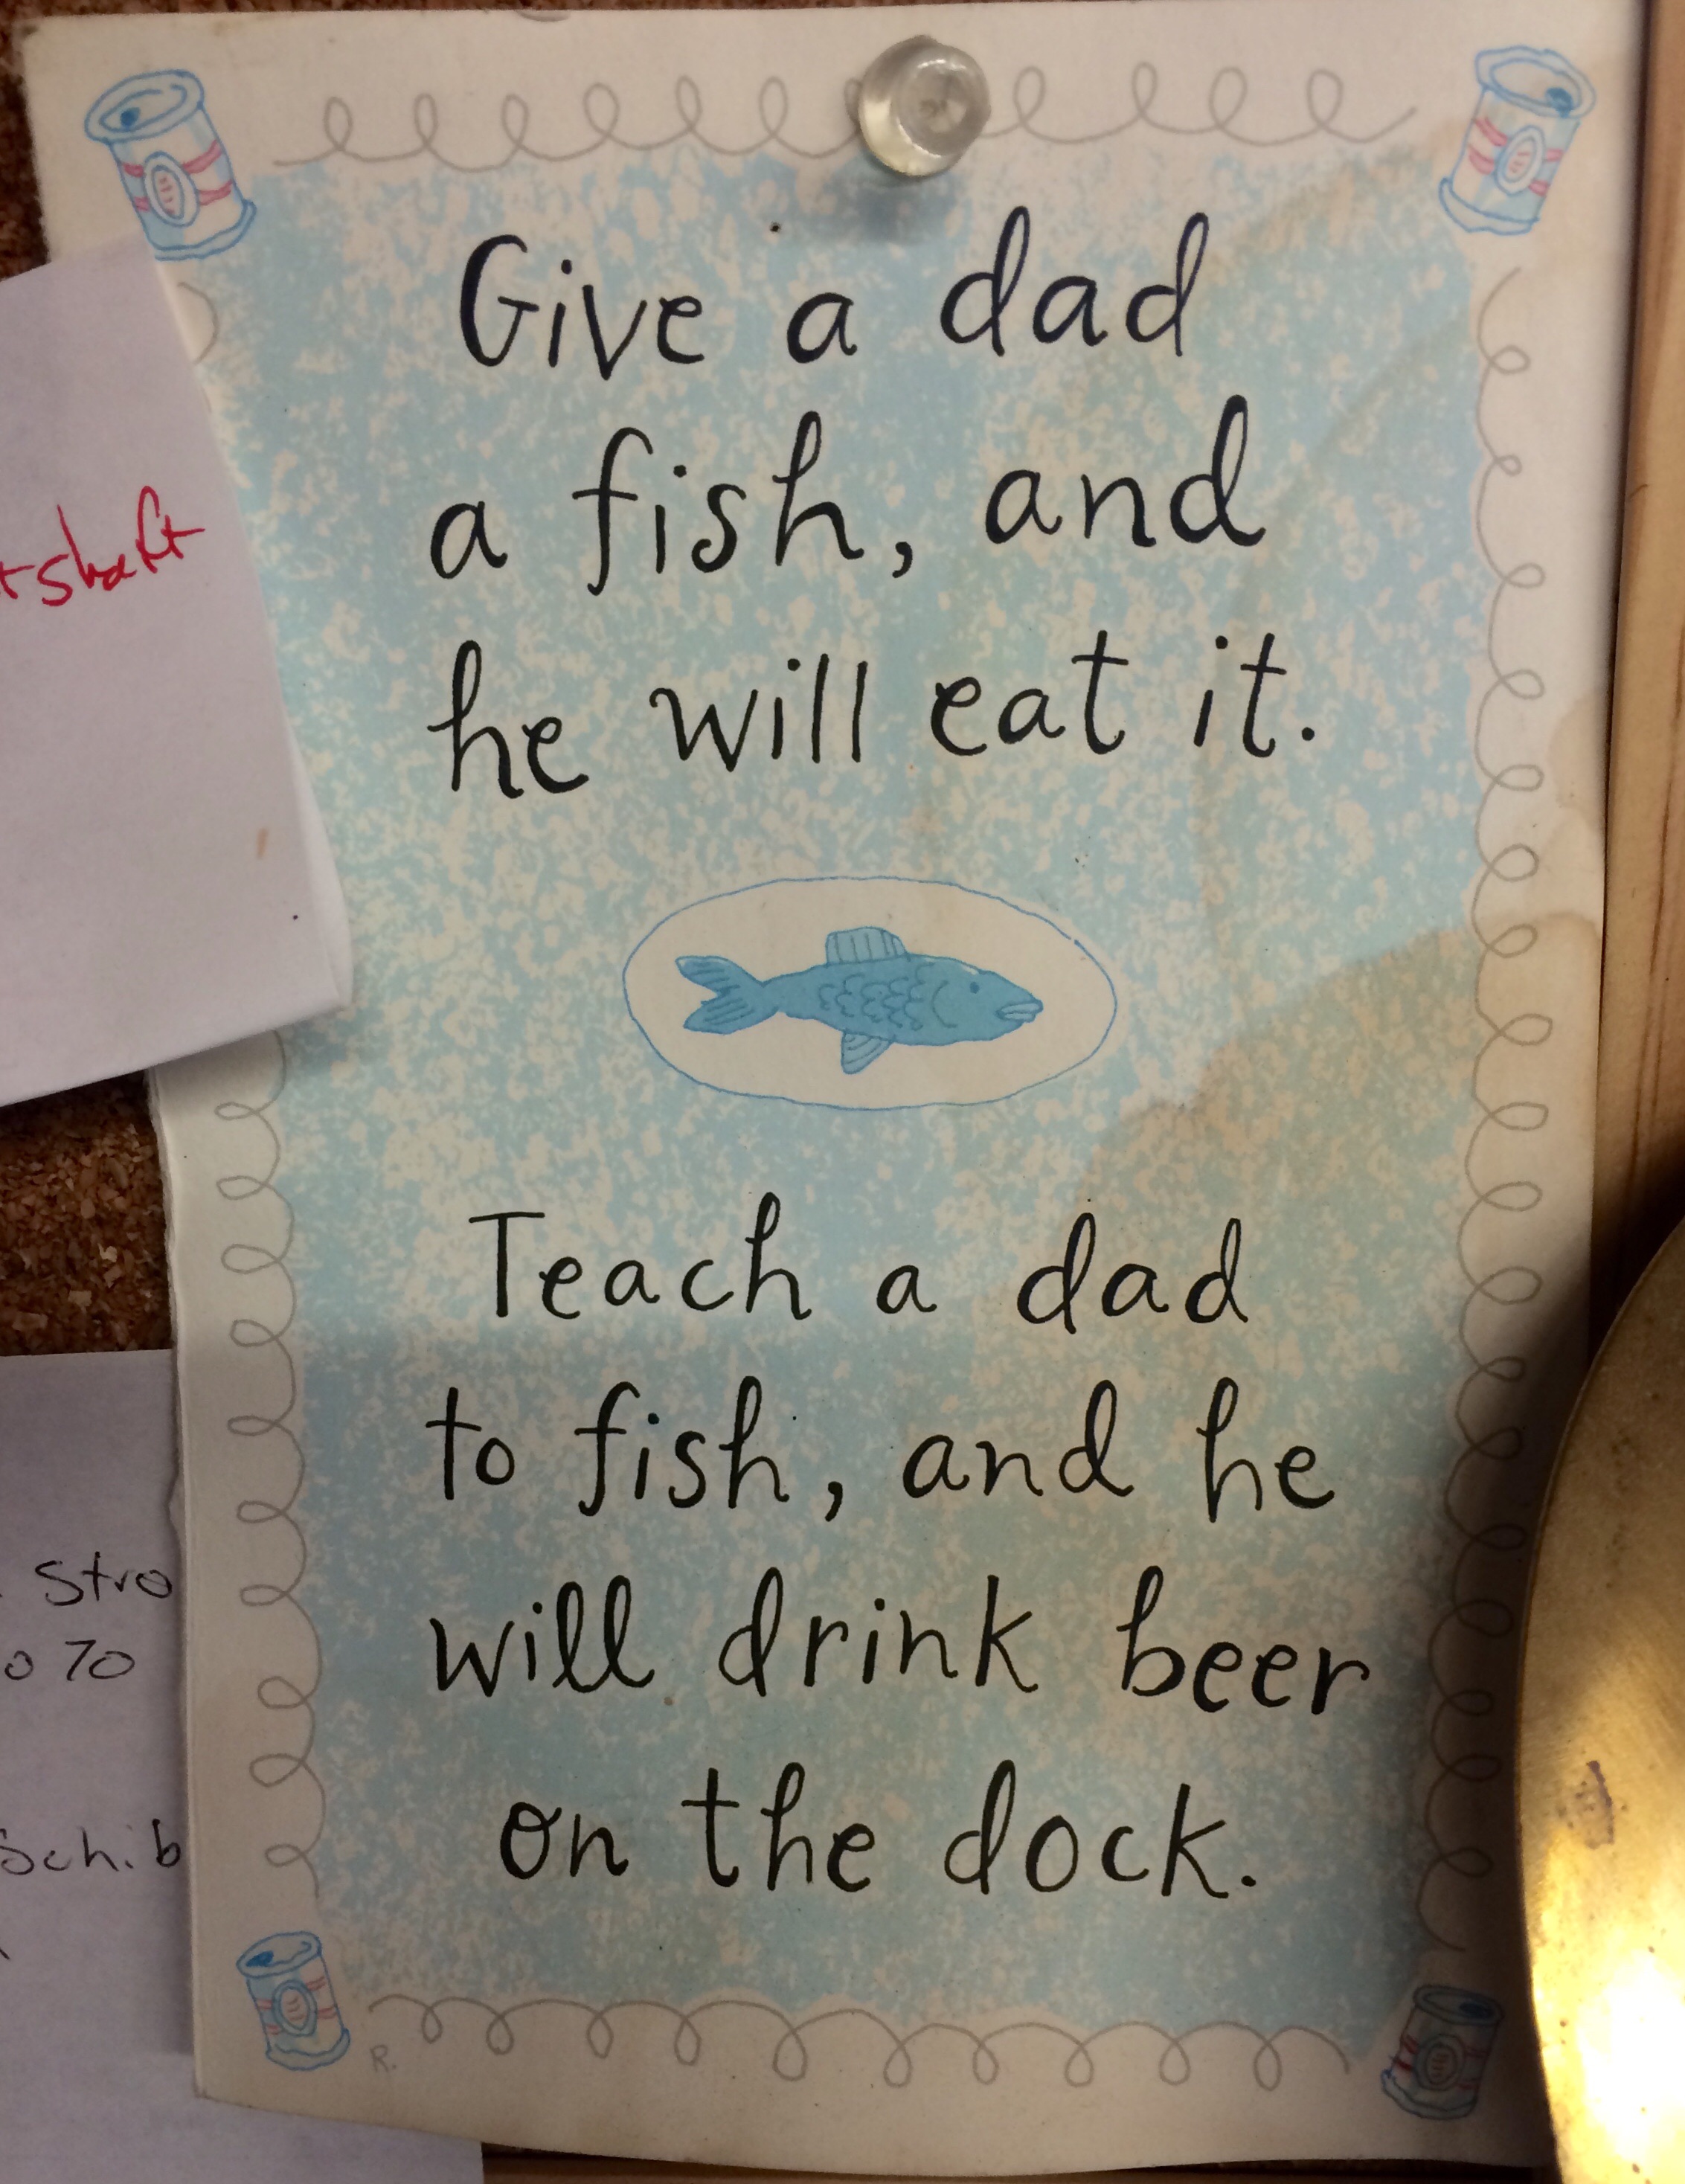 Give a dad
a fish, and
he will eat it.
Teach a dad
to fish, and he
will drink beer
on the dock.
R.
tshaft
Stro
o 70
Schib